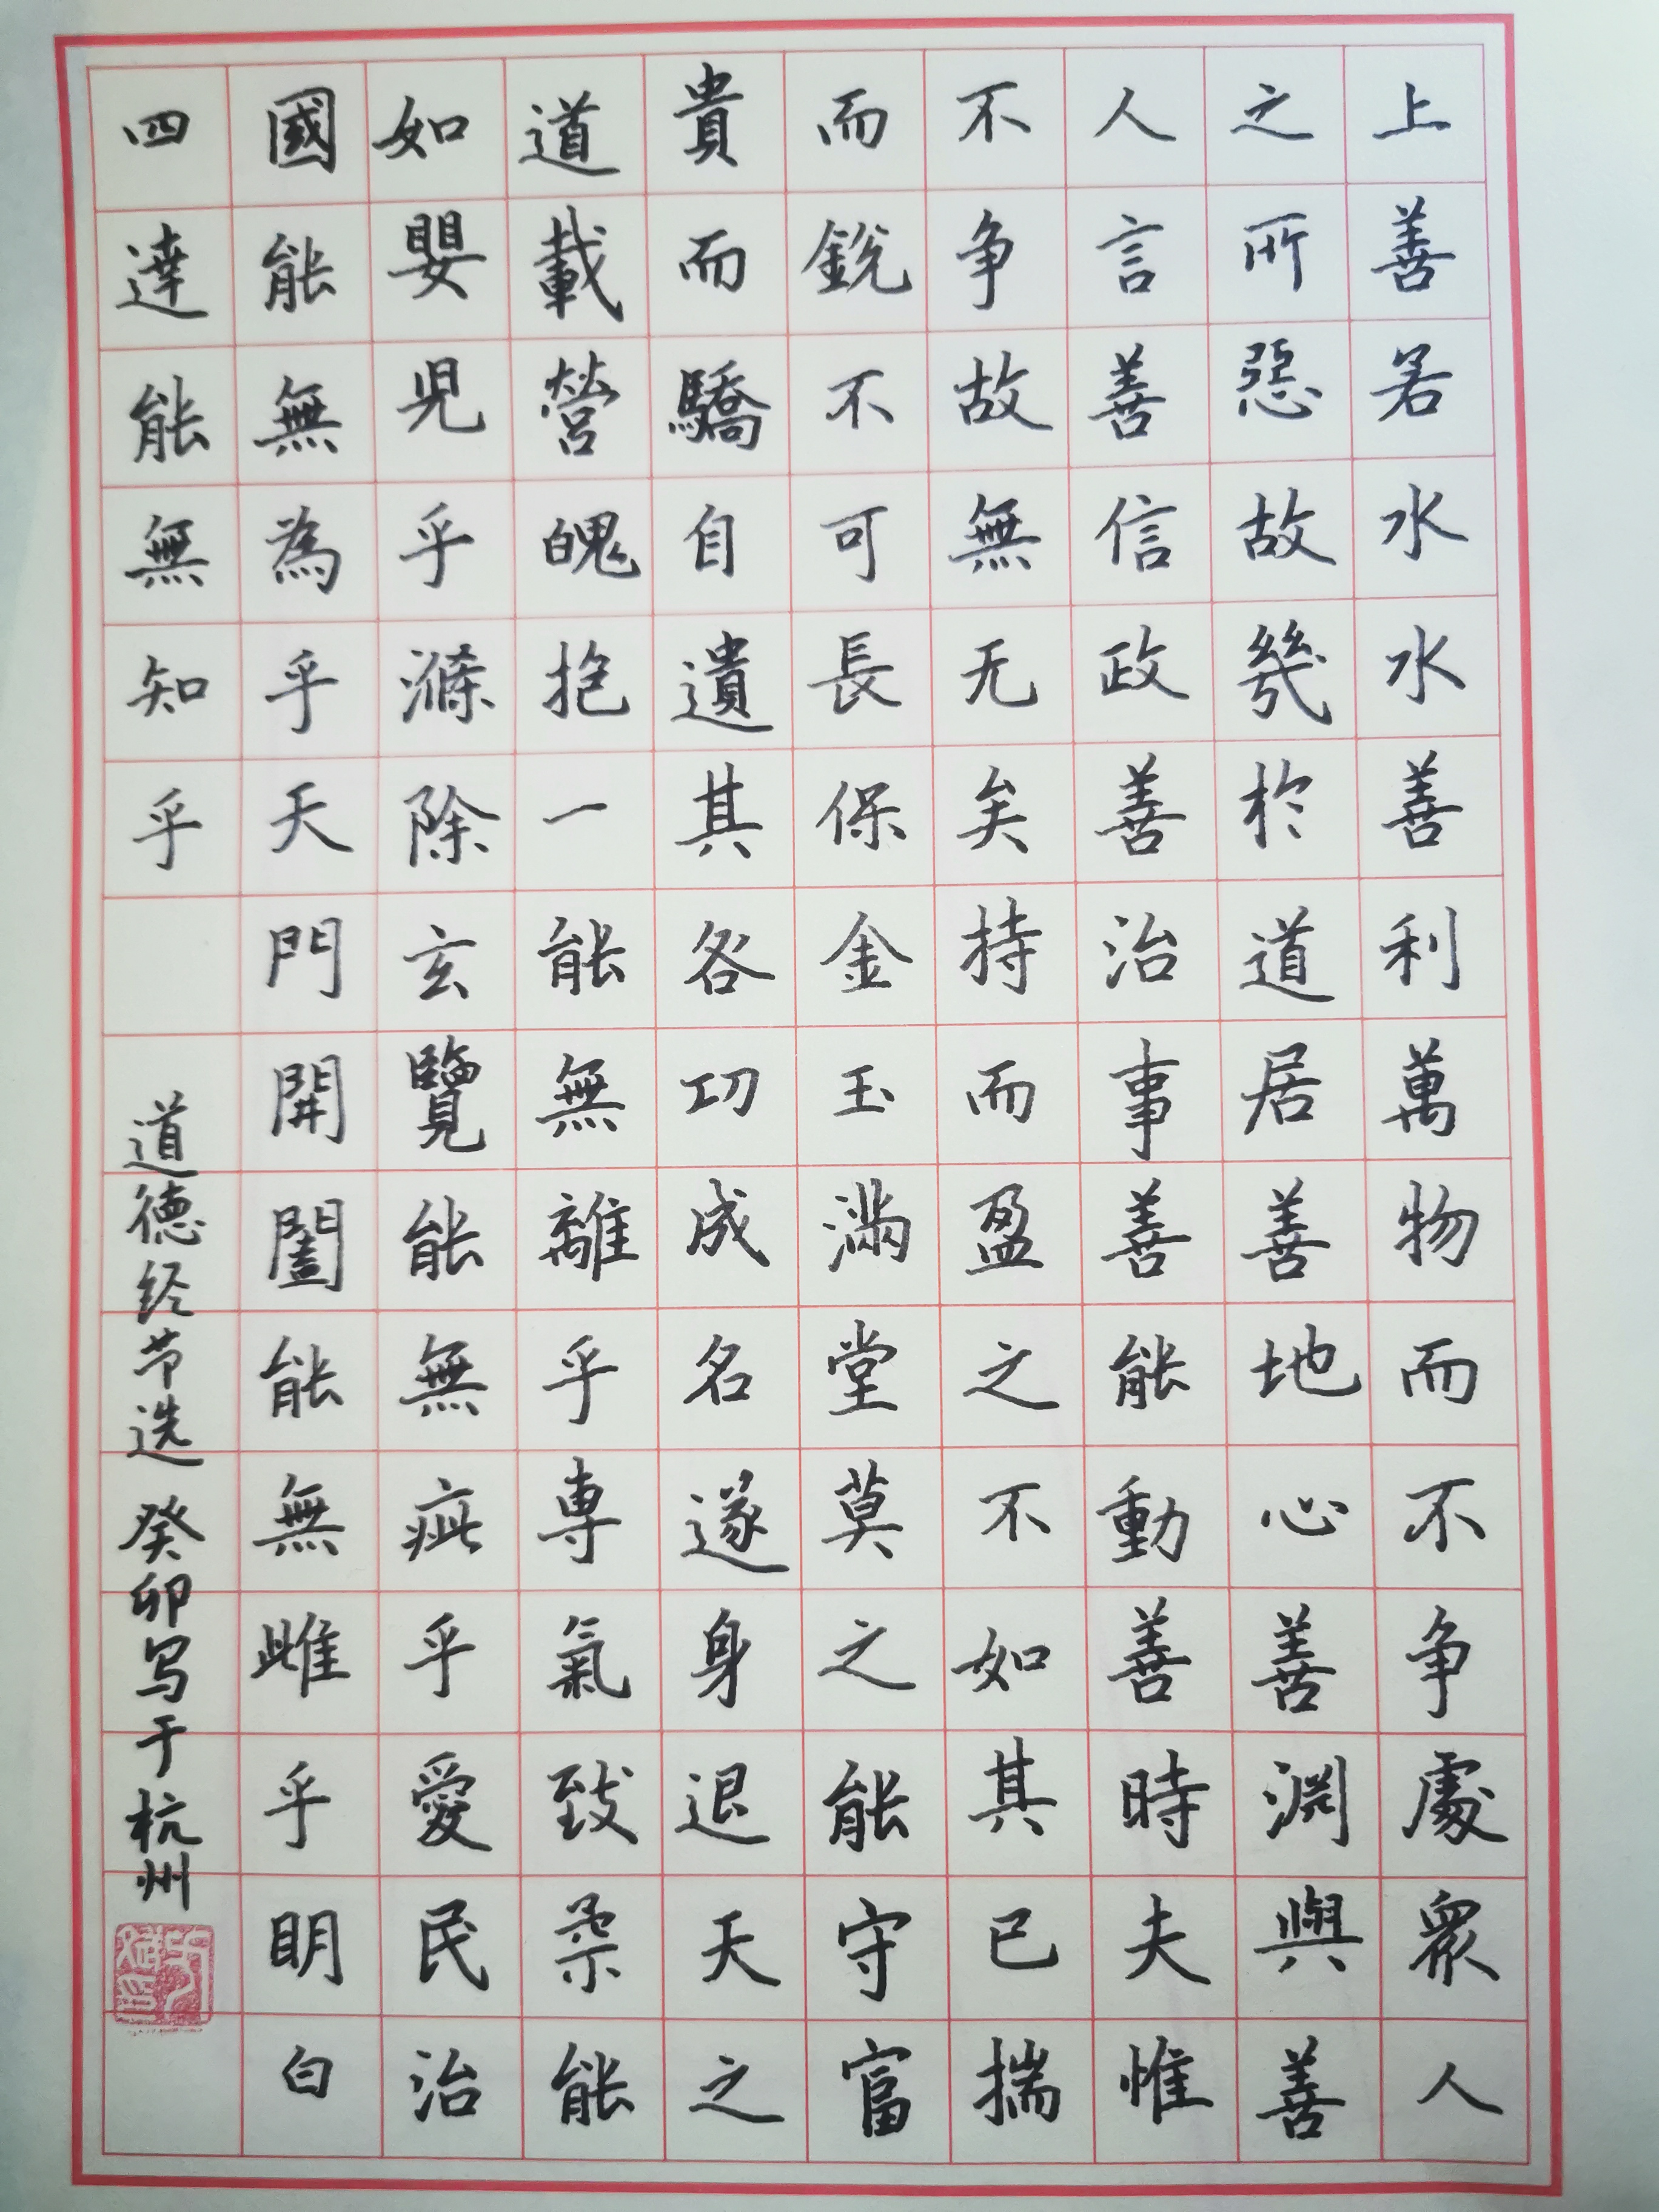 上善若水水善利萬物而不争處衆人
之所惡故幾於道居善地心善淵與善
人言善信政善治事善能動善時夫惟
不争故無尤矣持而盈之不如其已揣
而銳不可長保金玉滿堂莫之能守富
貴而驕自遺其咎功成名遂身退天之
道載營魄抱一能無離乎專氣致柔能
如嬰児乎滌除玄覽能無疵乎愛民治
國能無為乎天門開闔能無雌乎明白
四達能無知乎
道德经节选 癸卯写于杭州